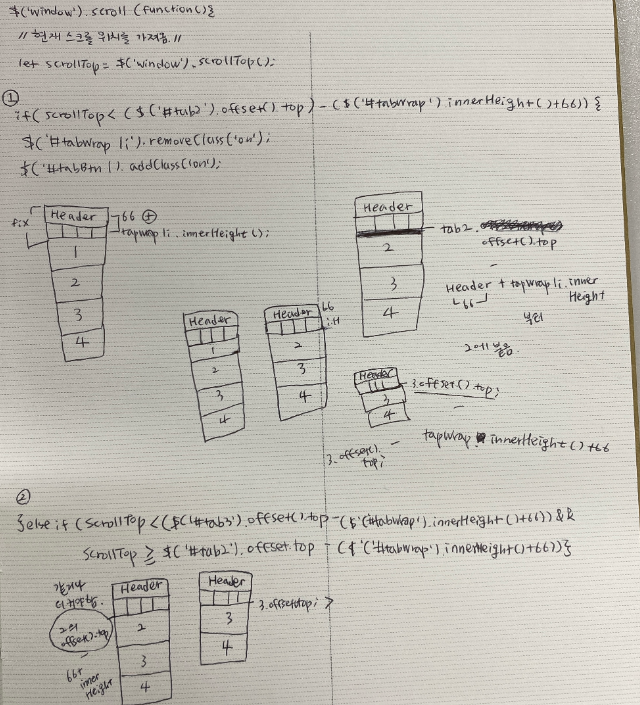 $('window').scroll (function(){
// 현재 스크롤 위치를 가져옴. //
let scrollTop = $('window').scrollTop();
①
if( scrollTop < ($('#tab2').offset().top) - ($('#tabWrap').innerHeight()+66)) {
$('#tabWrap li').removeClass('on');
$('#tabBtn1).addClass('on');
fix
Header
1
2
3
4
66 ⊕
tapwrap li.innerHeight();
Header
1
2
3
4
Header
2
3
4
66
i.H
Header
2
3
4
tab2.
offset().top
-
Header + tapwrap li.inner
Height
66
부터
2에 붙음.
Header
3
4
3.offset().top;
-
tapwrap innerHeight()+66
3.offset().
top;
-
②
}else if (scrollTop < ($('#tab3').offset().top - ($'(#tabWrap').innerHeight()+66)) &&
scrollTop ≥ $('#tab2').offset.top - ($'('#tabWrap').innerHeight()+66)){
같거나
더 커야함.
2의
offset().top
-
66+
inner
Height
Header
2
3
4
Header
3
4
3.offset.top; >